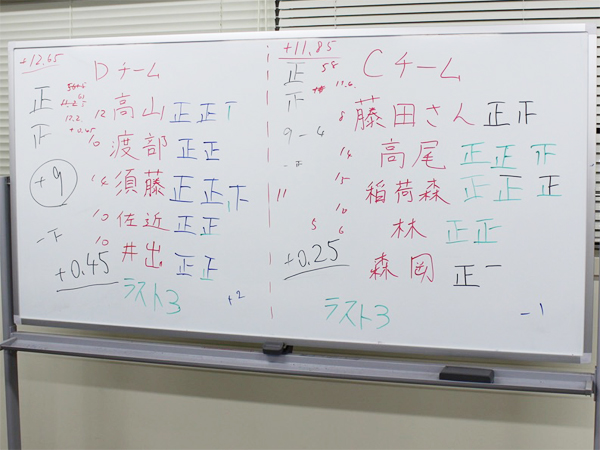 +12.65
Dチーム
正
正
+9
-下
+0.45
12 高山 正正下
10 渡部 正正
14 須藤 正正下
10 佐近 正正
10 井出 正正
ラスト3
+2
+11.85
58
Cチーム
正
正
9-4
11
+0.25
8 藤田さん 正正
14 高尾 正正正
15 稲荷森 正正正
10 林 正正
5 6
森岡 正一
ラスト3
-1